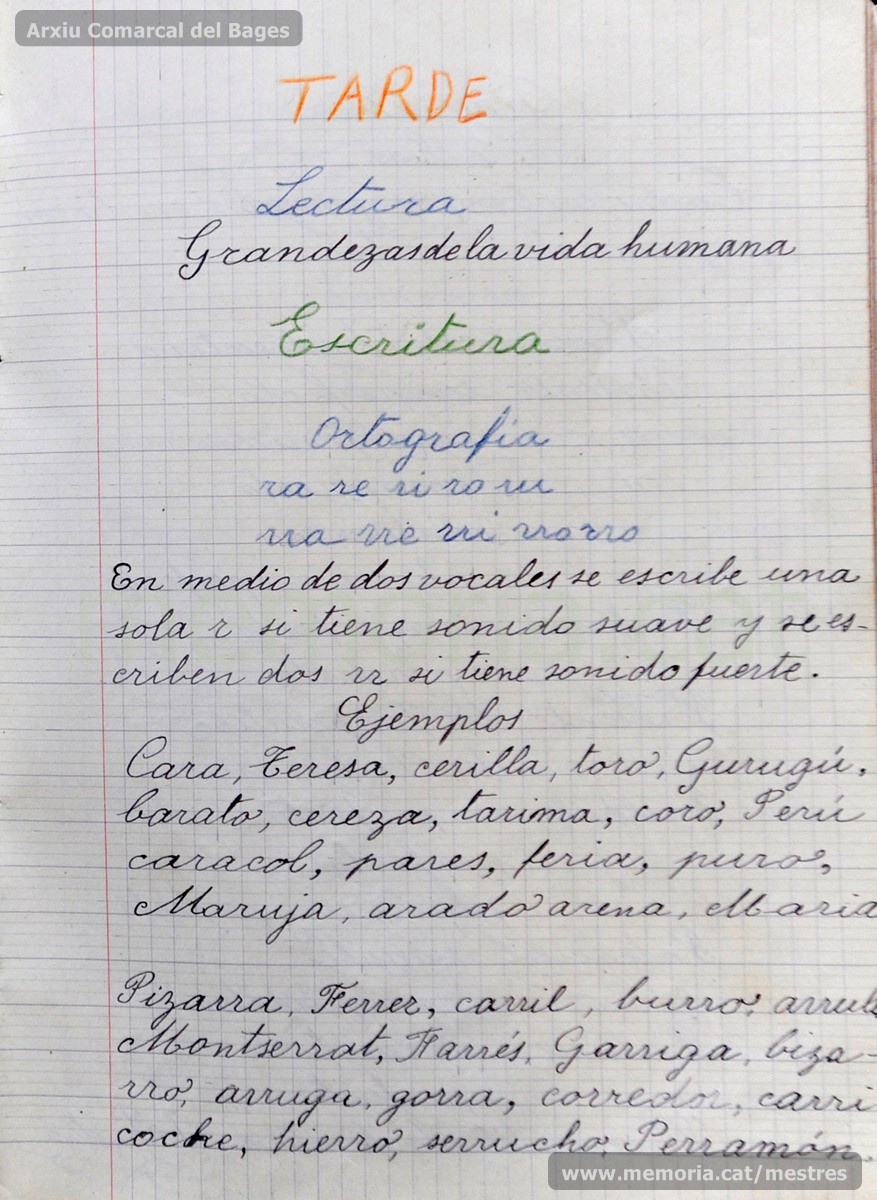 Arxiu Comarcal del Bages
TARDE
Lectura
Grandezas de la vida humana
Escritura
Ortografía
ra re ri ro ru
rra rre rri rro rro
En medio de dos vocales se escribe una
sola r si tiene sonido suave y se es-
criben dos rr si tiene sonido fuerte.
Ejemplos
Cara, Teresa, cerilla, toro, Gurugú,
barato, cereza, tarima, coro, Perú
caracol, pares, feria, puro,
Maruja, arado arena, Maria
Pizarra, Ferrer, carril, burro,
Montserrat, Farrés, Garriga, biza-
rro, arruga, gorra, corredor, carri
coche, hierro, serrucho, Perramón.
www.memoria.cat/mestres